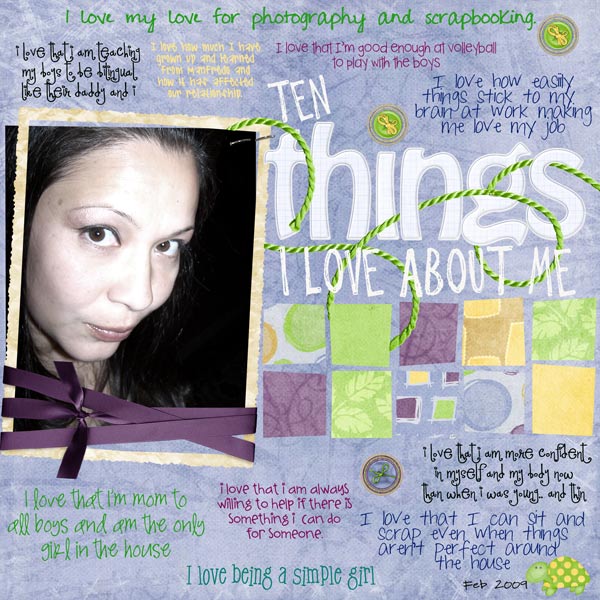 I love my love for photography and scrapbooking.
i love that i am teaching
my boys to be bilingual
like their daddy and i
I love how much I have
grown up and learned
from Manfredo and
how it has affected
our relationship.
I love that I'm good enough at volleyball
to play with the boys
I love how easily
things stick to my
brain at work making
me love my job
TEN
things
I LOVE ABOUT ME
i love that i am more confident
in myself and my body now
than when i was young.. and thin
I love that I'm mom to
all boys and am the only
girl in the house
i love that i am always
willing to help if there is
something i can do
for someone.
I love that I can sit and
scrap even when things
aren't perfect around
the house
I love being a simple girl
Feb 2009